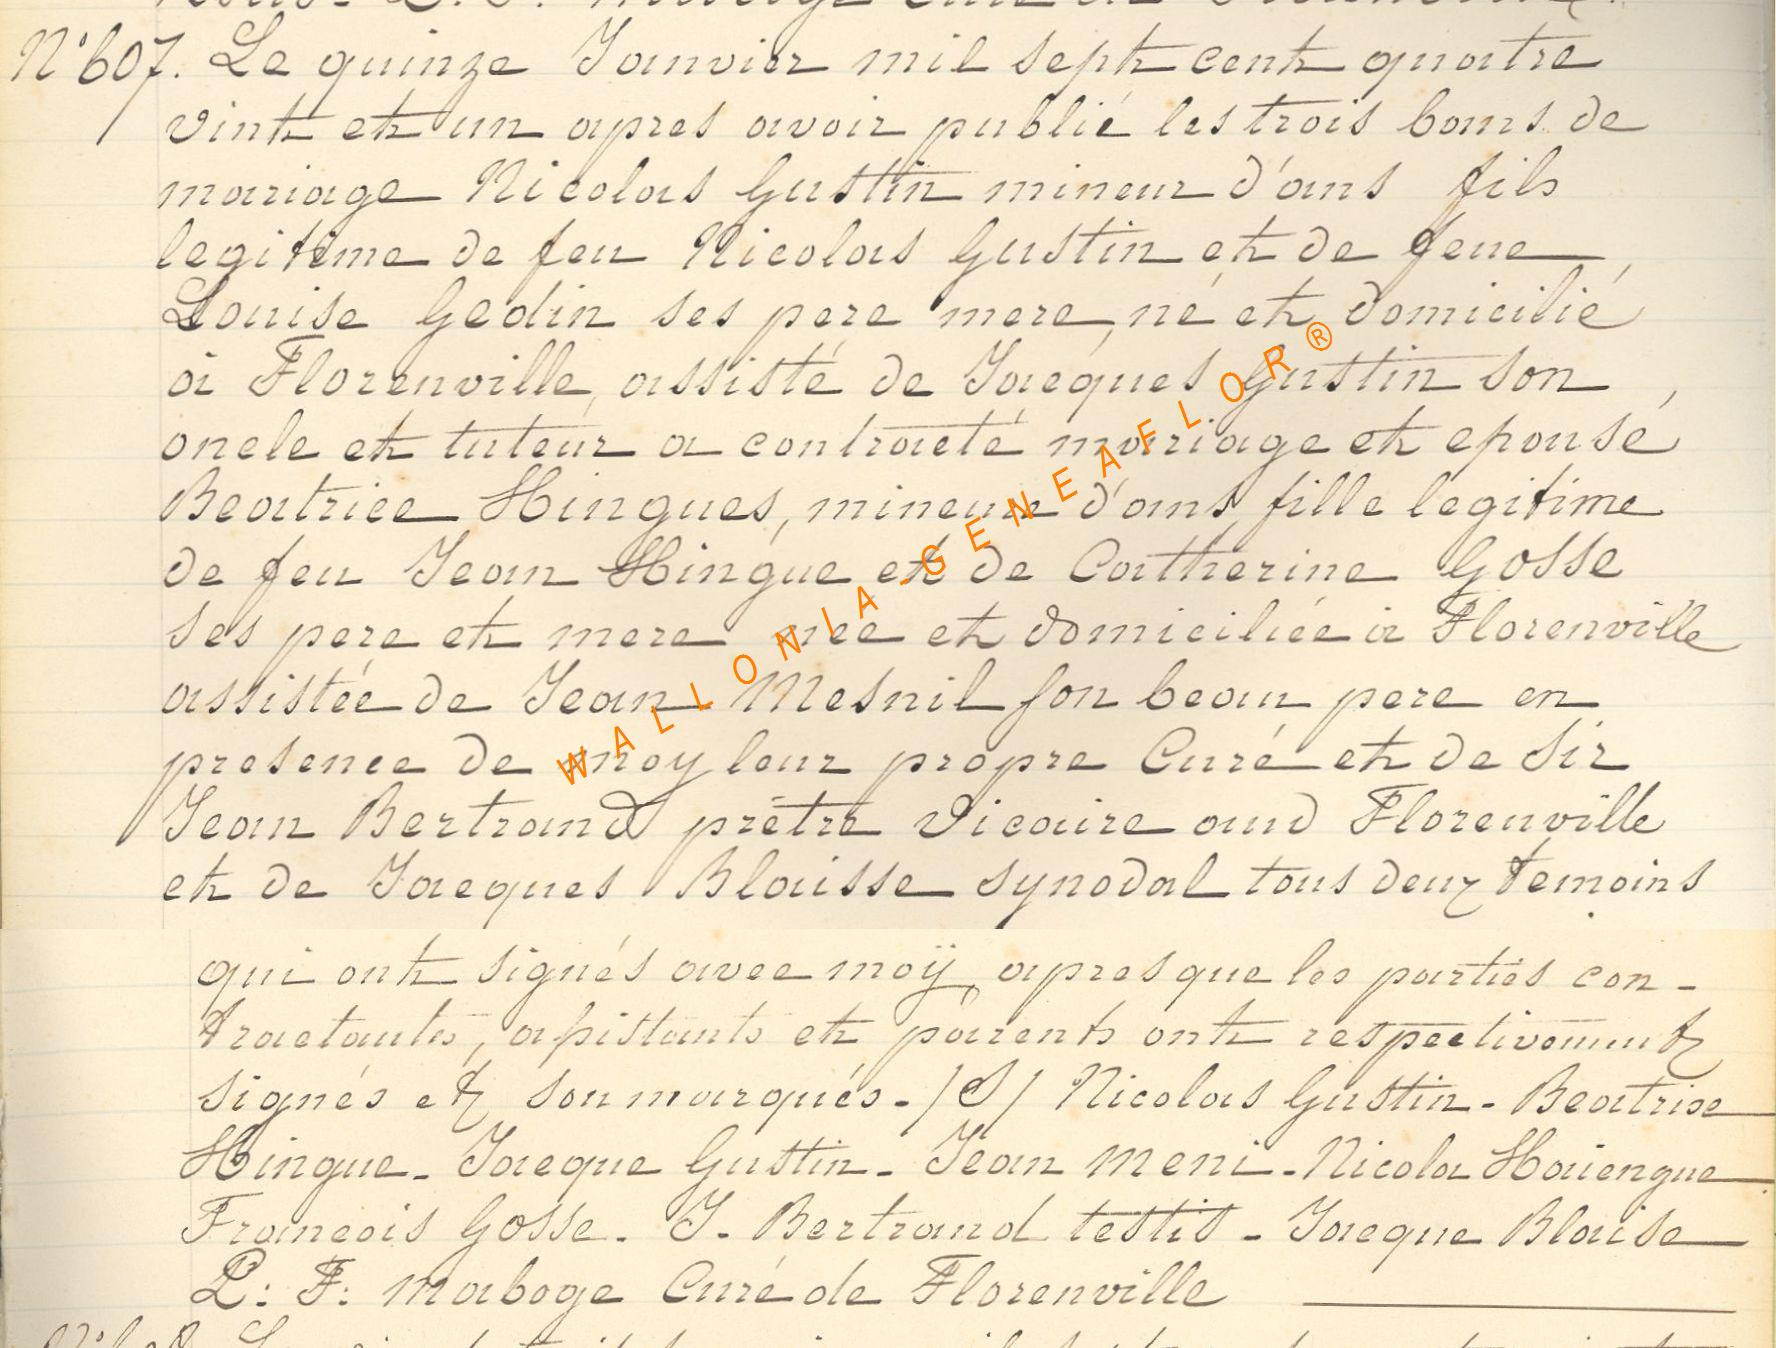 N° 607. Le quinze Janvier mil sept cent quatre
vint et un apres avoir publié les trois bans de
mariage Nicolas Gustin mineur d'ans fils
legitime de feu Nicolas Gustin et de feue
Louise Gedin ses pere mere, né et domicilié
à Florenville, assisté de Jacques Gustin son
oncle et tuteur a contracté mariage et epousé,
Beatrice Hingues, mineur d'ans, fille legitime
de feu Jean Hingue et de Catherine Gosse
ses pere et mere nee et domiciliée à Florenville
assistée de Jean Mesnil son beau pere en
presence de moy leur propre Curé et de Sir
Jean Bertrand prétre Vicaire aud Florenville
et de Jacques Blaisse synodal tous deux temoins
qui ont signés avec moÿ, apres que les partiés con-
tractants, assistants et parents ont respectivement
signés et sou marqués - /S/ Nicolas Gustin - Beatrise
Hingue - Jacque Gustin - Jean Meni - Nicola Haiengue
Francois Gosse - J. Bertrand testis - Jacque Blaise
P: F: Maboge Curé de Florenville
WALLONIA-GENEAFLOR®